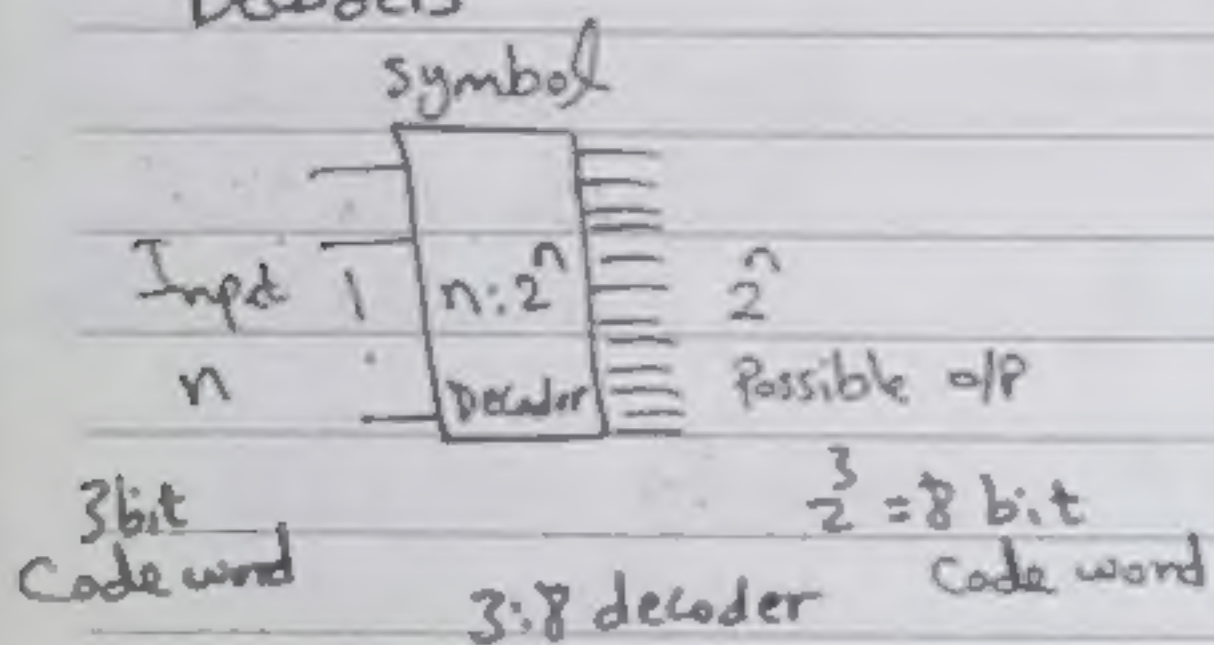 Decoders
Symbol
Input
n
n:2ⁿ
Decoder
2ⁿ
Possible o/p
3bit
Code word
2³ = 8 bit
Code word
3:8 decoder